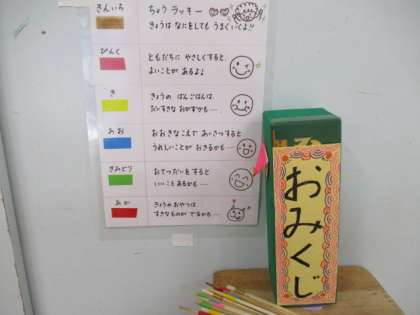 きんいろ
ちょうラッキー
きょうは なにをしても うまくいくよ!!
ぴんく
ともだちに やさしくすると
よいことが あるよ♪
き
きょうの ばんごはんは、
だいすきな おかずかも…
あお
おおきなこえで あいさつすると
うれしいことが おきるかも…
きみどり
おてつだいをすると
いいこと あるかも…
あか
きょうのおやつは
すきなものが でるかも…
おみくじ